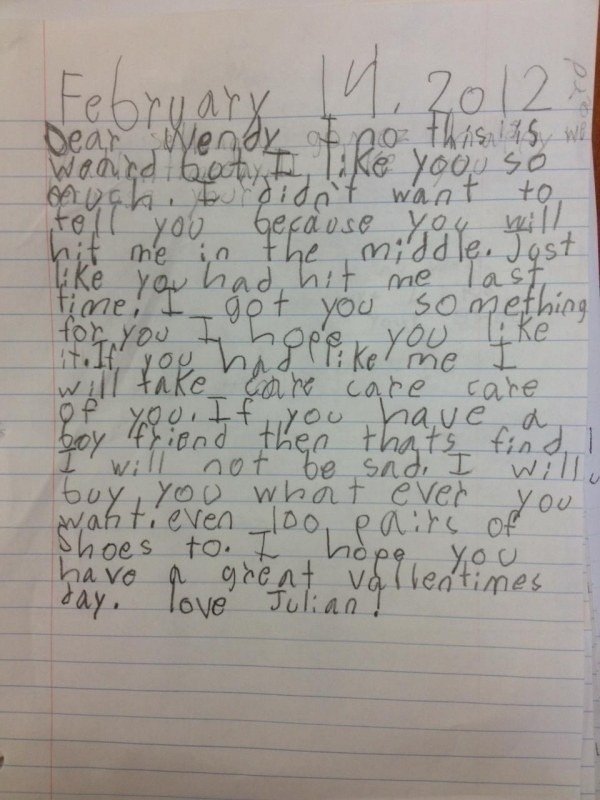 February 14, 2012
Dear Wendy I no this is
weard bot I like yoou so
much. I didn't want to
tell you because you will
hit me in the middle. Just
like you had hit me last
time. I got you something
for you I hope you like
it. If you had like me I
will take care care care
of you. If you have a
boy friend then thats find
I will not be sad. I will
buy you what ever you
want. even 100 pairs of
shoes to. I hope you
have a great vallentimes
day. love Julian!